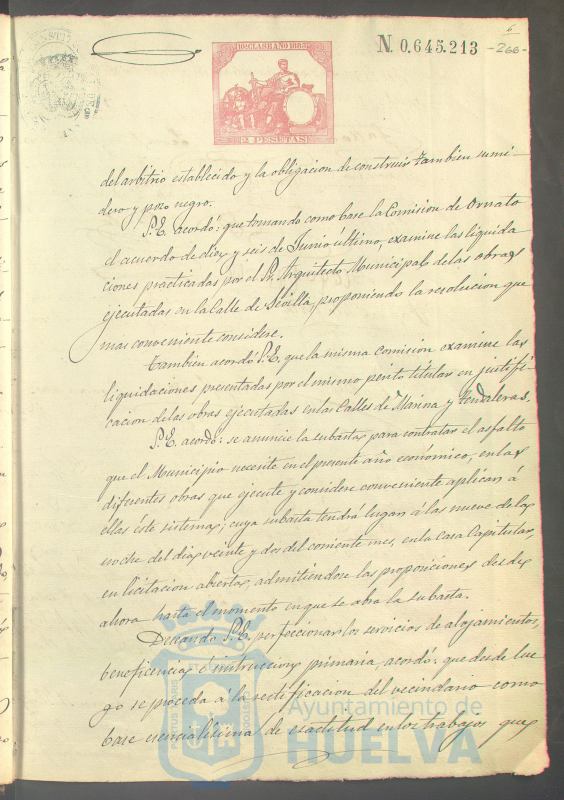 6
N. 0.645.213 -266-
10ª CLASE AÑO 1883
2 PESETAS
del arbitrio establecido y la obligacion de construir tambien sumi
dero y pozo negro.
S.E. acordó: que tomando como base la Comision de Ornato
el acuerdo de diez y seis de Junio último, examine las liquida
ciones practicadas por el Sr. Arquitecto Municipal de las obras
ejecutadas en la Calle de Sevilla, proponiendo la resolucion que
mas conveniente considere.
Tambien acordó S.E. que la misma Comision examine las
liquidaciones presentadas por el mismo perito titular en justifi-
cacion de las obras ejecutadas en las Calles de Marina y Tendaleras.
S.E. acordó: se anuncie la subasta para contratar el asfalto
que el Municipio necesite en el presente año económico, en las
diferentes obras que ejecute y considere conveniente aplicar á
ellas éste sistema; cuya subasta tendrá lugar á las nueve de la
noche del dia veinte y dos del corriente mes, en la Casa Capitular,
en licitacion abierta, admitiendose las proposiciones desde
ahora hasta el momento en que se abra la subasta.
Deseando S.E. perfeccionar los servicios de alojamientos,
beneficencia é instruccion primaria, acordó: que desde lue
go se proceda á la rectificacion del vecindario como
base esencialisima de exactitud en los trabajos que
Ayuntamiento de
HUELVA